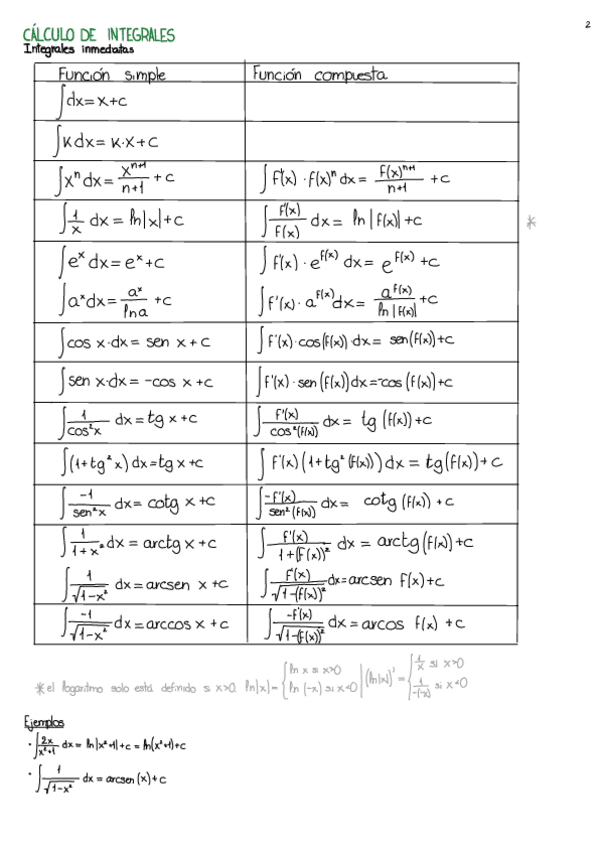 2
CÁLCULO DE INTEGRALES
Integrales inmediatas
Función simple Función compuesta
∫dx = x + c
∫K dx = K·x + C
∫xⁿ dx = xⁿ⁺¹/n+1 + c ∫f'(x) · f(x)ⁿ dx = f(x)ⁿ⁺¹/n+1 + c
∫1/x dx = ln|x| + c ∫f'(x)/f(x) dx = ln|f(x)| + c *
∫eˣ dx = eˣ + c ∫f'(x) · e^f(x) dx = e^f(x) + c
∫aˣ dx = aˣ/lna + c ∫f'(x) · a^f(x) dx = a^f(x)/ln|f(x)| + c
∫cos x·dx = sen x + c ∫f'(x)·cos(f(x))·dx = sen(f(x)) + c
∫sen x·dx = -cos x + c ∫f'(x)·sen(f(x)) dx = -cos(f(x)) + c
∫1/cos²x dx = tg x + c ∫f'(x)/cos²(f(x)) dx = tg (f(x)) + c
∫(1+tg²x) dx = tg x + c ∫f'(x)(1+tg²(f(x))) dx = tg(f(x)) + c
∫-1/sen²x dx = cotg x + c ∫-f'(x)/sen²(f(x)) dx = cotg (f(x)) + c
∫1/1+x² dx = arctg x + c ∫f'(x)/1+(f(x))² dx = arctg(f(x)) + c
∫1/√1-x² dx = arcsen x + c ∫f'(x)/√1-(f(x))² dx = arcsen f(x) + c
∫-1/√1-x² dx = arccos x + c ∫-f'(x)/√1-(f(x))² dx = arcos f(x) + c
* el logaritmo solo está definido si x>0. ln|x| = { ln x si x>0 | (ln|x|)' = { 1/x si x>0
ln (-x) si x<0 1/-(-x) si x<0
Ejemplos
· ∫2x/x²+1 dx = ln|x²+1| + c = ln(x²+1) + c
· ∫1/√1-x² dx = arcsen (x) + c